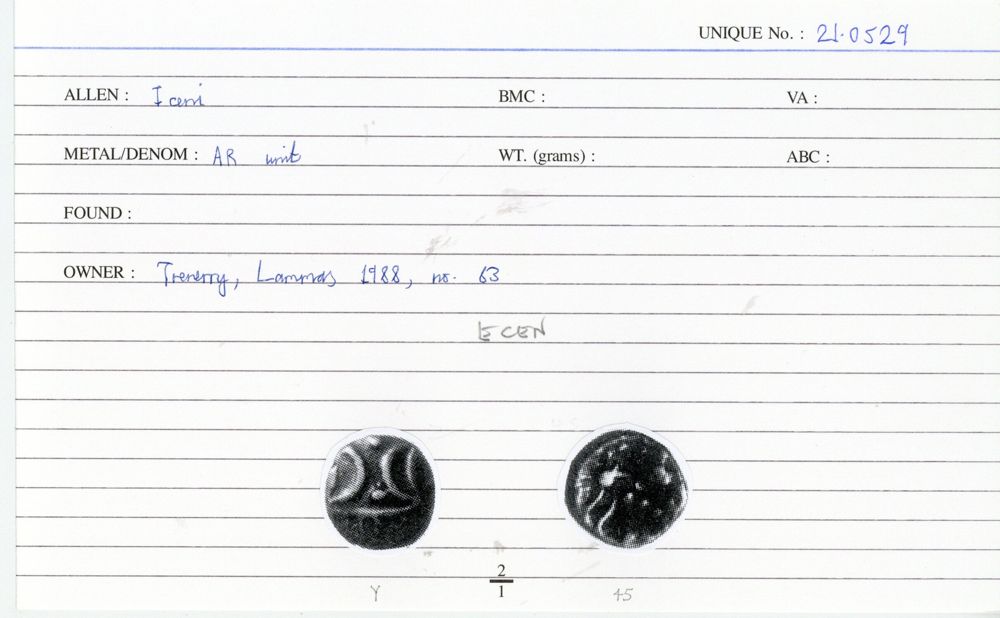 UNIQUE No. : 21.0529
ALLEN : Iceni BMC : VA :
METAL/DENOM : AR unit WT. (grams) : ABC :
FOUND :
OWNER : Trenerry, Lammas 1988, no. 63
ECEN
2
Y 1 45